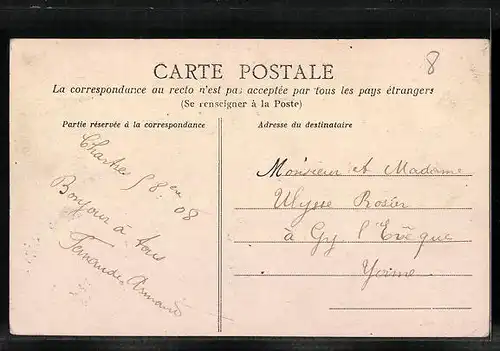 8
CARTE POSTALE
La correspondance au recto n'est pas acceptée par tous les pays étrangers
(Se renseigner à la Poste)
Partie réservée à la correspondance
Adresse du destinataire
Chartres 8 08
Bonjour à tous
Fernande Armand
Monsieur et Madame
Ulysse Rosier
à Gy l'Evêque
Yonne